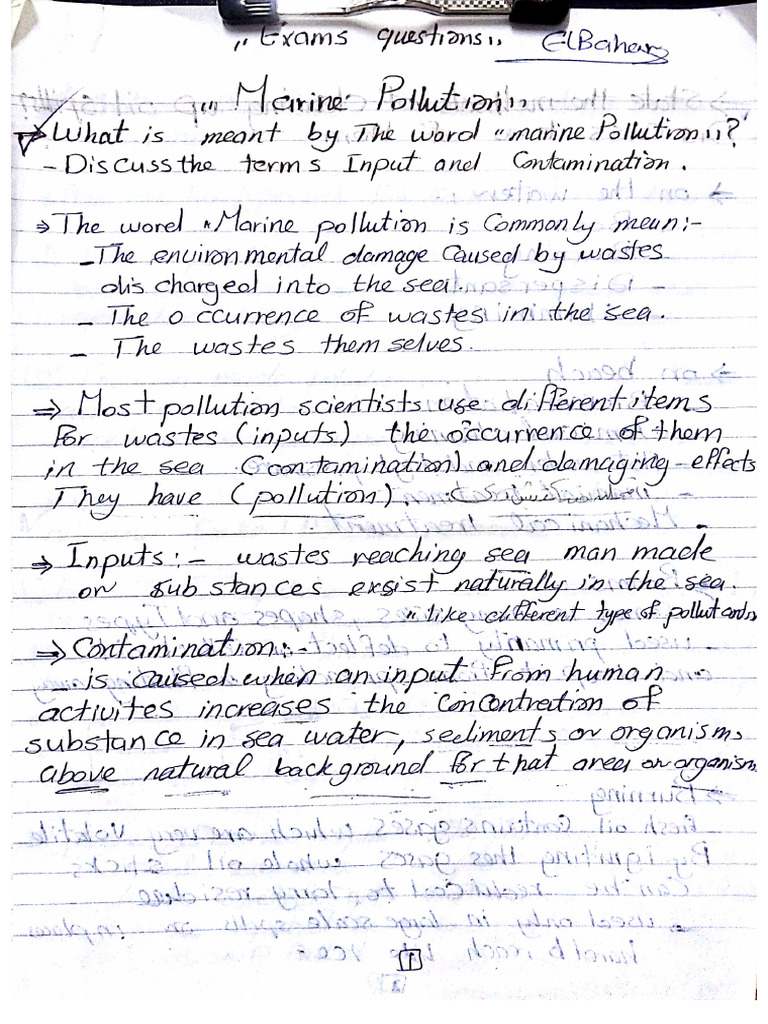 „ Exams questions „ ElBahary
„ Marine Pollution „
⇒ What is meant by The word „marine Pollution„?
- Discuss the terms Input and Contamination.
⇒ The word "Marine pollution is Commonly mean:-
- The environmental damage Caused by wastes
discharged into the sea.
- The occurrence of wastes in the sea.
- The wastes themselves.
⇒ Most pollution scientists use different items
For wastes (inputs) the occurrence of them
in the sea (contamination) and damaging effects
They have (pollution).
⇒ Inputs:- wastes reaching sea man made
or substances exsist naturally in the sea.
"like different type of pollutants"
⇒ Contamination:-
- is caused when an input From human
activites increases the Concontretion of
substance in sea water, sediments or organisms
above natural background for that area or organism
1